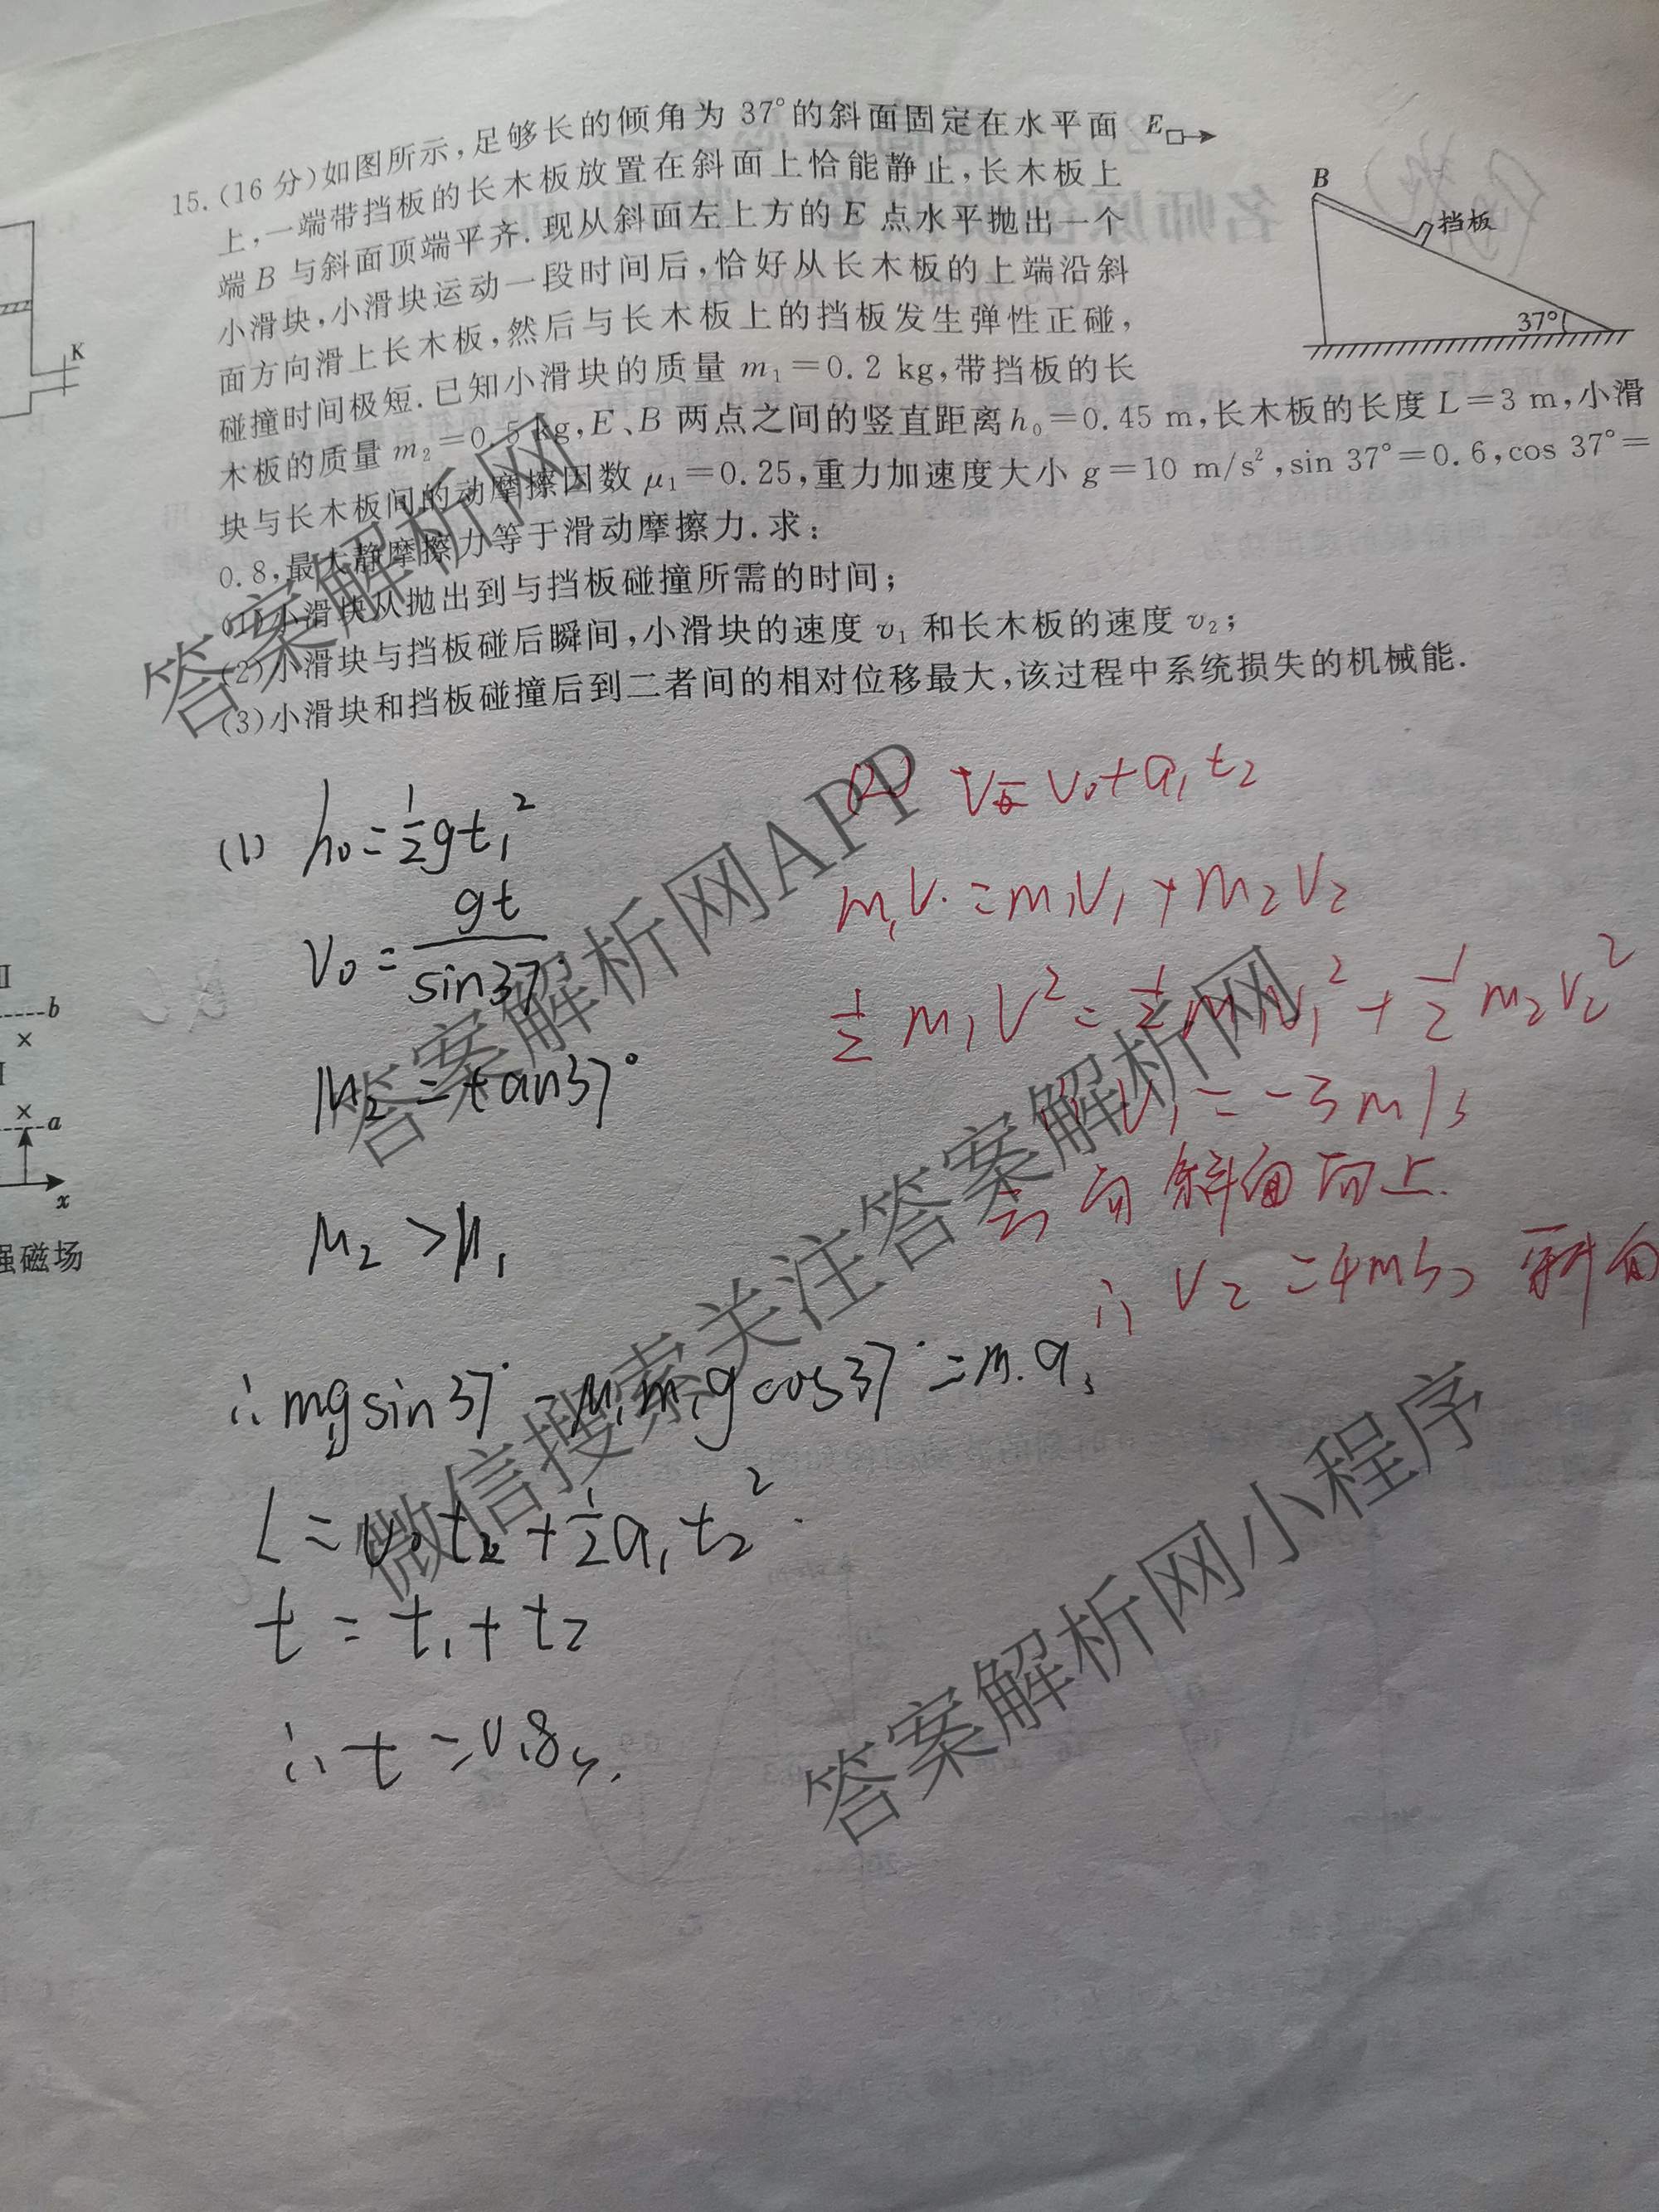 15.(16 分)如图所示,足够长的倾角为 37°的斜面固定在水平面
上,一端带挡板的长木板放置在斜面上恰能静止,长木板上
端 B 与斜面顶端平齐. 现从斜面左上方的 E 点水平抛出一个
小滑块,小滑块运动一段时间后,恰好从长木板的上端沿斜
面方向滑上长木板,然后与长木板上的挡板发生弹性正碰,
碰撞时间极短. 已知小滑块的质量 m₁=0.2 kg,带挡板的长
木板的质量 m₂=0.5 kg,E、B 两点之间的竖直距离 h₀=0.45 m,长木板的长度 L=3 m,小滑
块与长木板间的动摩擦因数 μ₁=0.25,重力加速度大小 g=10 m/s²,sin 37°=0.6,cos 37°=
0.8,最大静摩擦力等于滑动摩擦力. 求:
(1)小滑块从抛出到与挡板碰撞所需的时间;
(2)小滑块与挡板碰后瞬间,小滑块的速度 v₁ 和长木板的速度 v₂;
(3)小滑块和挡板碰撞后到二者间的相对位移最大,该过程中系统损失的机械能.
E
B
挡板
37°
K
b
×
×
a
x
强磁场
(1) h₀=½gt₁²
v₀=gt/sin37°
μ₂=tan37°
μ₂>μ₁
∴ m₁gsin37°-μ₁m₁gcos37°=m₁a₁
L=v₀t₂+½a₁t₂²
t=t₁+t₂
∴ t=0.8s.
(2) v=v₀+a₁t₂
m₁v=m₁v₁+m₂v₂
½m₁v²=½m₁v₁²+½m₂v₂²
v₁=-3m/s
斜面向上.
∴ v₂=4m/s,
答案解析网
答案解析网APP
微信搜索关注答案解析网
答案解析网小程序